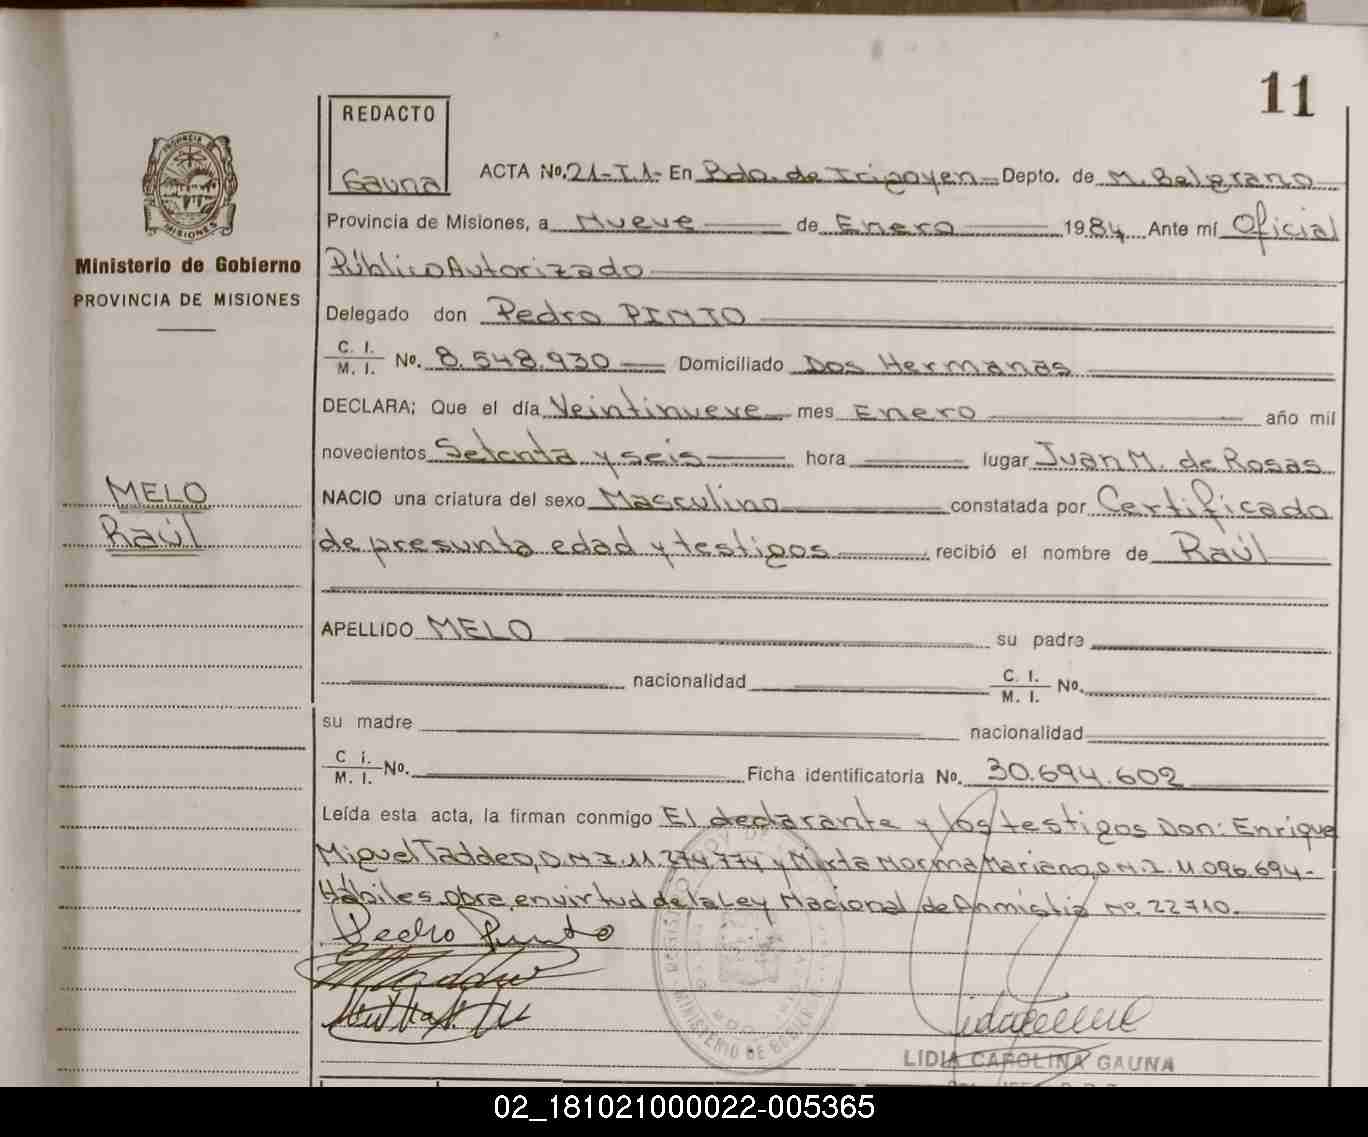 11
REDACTO
Gauna
ACTA No. 21-T.1- En Bdo. de Irigoyen Depto. de M. Belgrano
PROVINCIA DE MISIONES
Ministerio de Gobierno
PROVINCIA DE MISIONES
Provincia de Misiones, a Nueve de Enero 1984 Ante mí Oficial
Público Autorizado
Delegado don Pedro PINTO
C. I. / M. I. No. 8.548.930 Domiciliado Dos Hermanas
DECLARA; Que el día Veintinueve mes Enero año mil
novecientos Setenta y seis hora lugar Juan M. de Rosas
MELO
Raúl
NACIO una criatura del sexo Masculino constatada por Certificado
de presunta edad y testigos recibió el nombre de Raúl
APELLIDO MELO su padre
nacionalidad C. I. / M. I. No.
su madre nacionalidad
C i. / M. I. No. Ficha identificatoria No. 30.694.602
Leída esta acta, la firman conmigo El declarante y los testigos Don: Enrique
Miguel Taddeo, D.N.I. 11.274.774 y Mirta Norma Mariano, D.N.I. 11.096.694-
Hábiles. obra en virtud de la Ley Nacional de Anmistia Nº. 22710.
Pedro Pinto
MINISTERIO DE GOBIERNO
LIDIA CAROLINA GAUNA
02_181021000022-005365